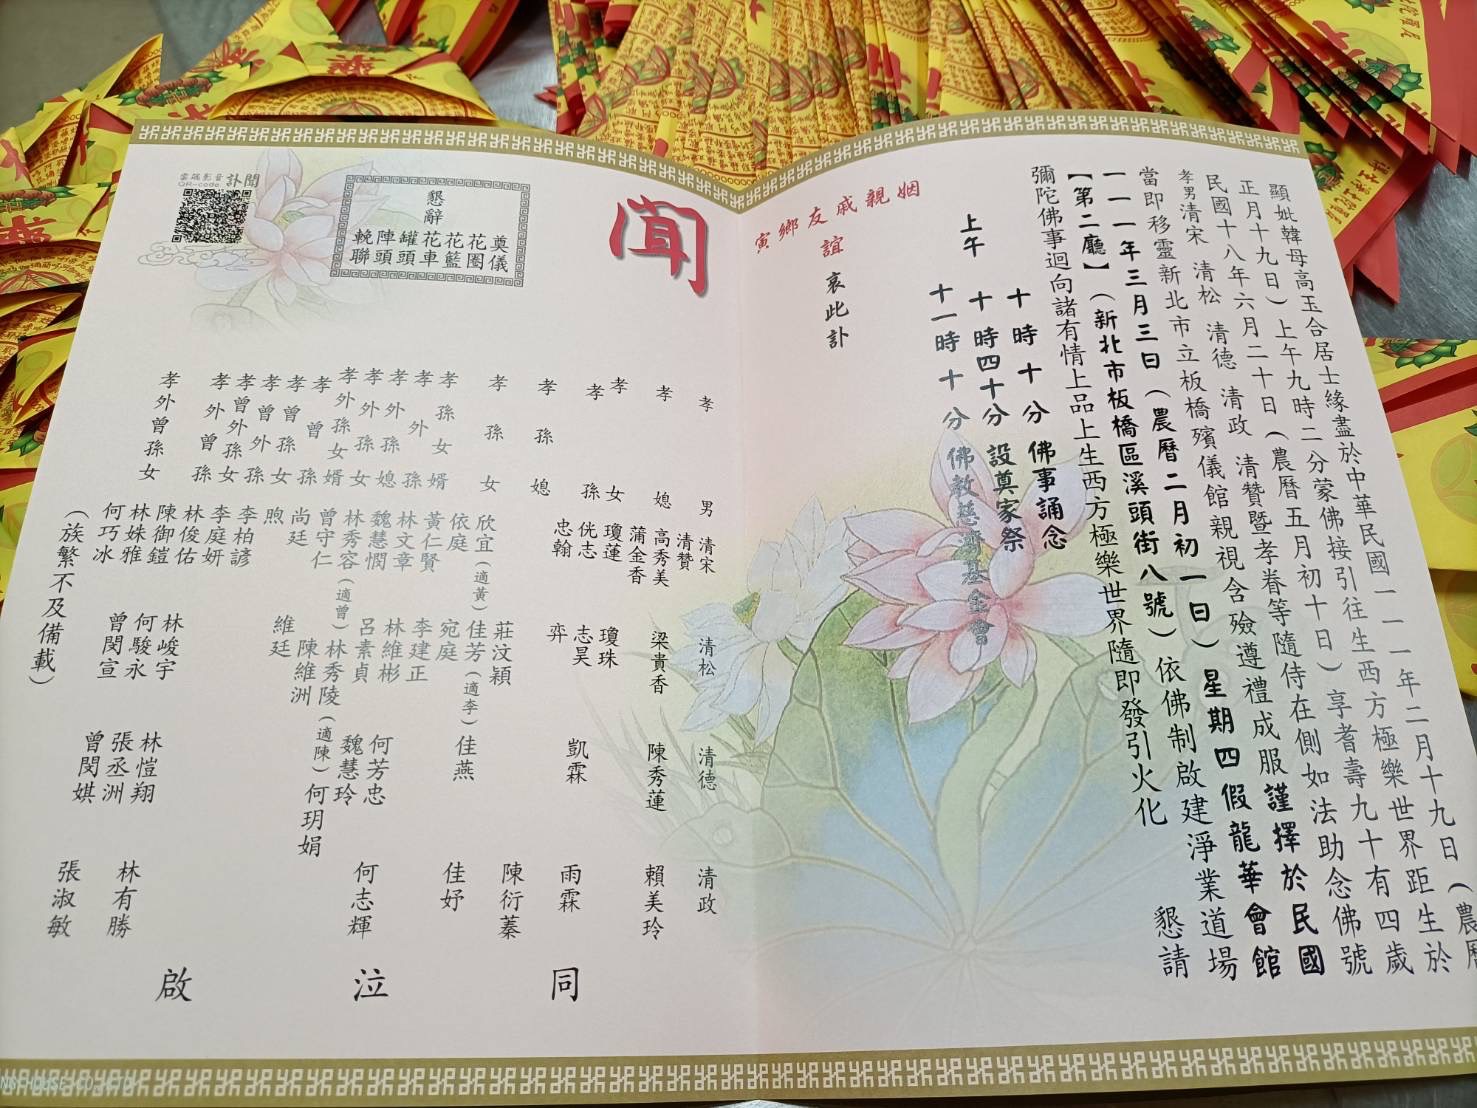 顯妣韓母高玉合居士緣盡於中華民國一一一年二月十九日(農曆
正月十九日)上午九時二分蒙佛接引往生西方極樂世界距生於
民國十八年六月二十日(農曆五月初十日)享耆壽九十有四歲
孝男清宋 清松 清德 清政 清贊暨孝眷等隨侍在側如法助念佛號
當即移靈新北市立板橋殯儀館親視含殮遵禮成服謹擇於民國
一一一年三月三日(農曆二月初一日)星期四假龍華會館
【第二廳】(新北市板橋區溪頭街八號)依佛制啟建淨業道場
彌陀佛事迴向諸有情上品上生西方極樂世界隨即發引火化
懇請
上午
十時十分佛事誦念
十時四十分設奠家祭
十一時十分佛教慈濟基金會
姻親戚友鄉寅
誼
哀此訃
聞
懇辭
奠儀
花圈
花籃
花車
罐頭
陣頭
輓聯
訃聞
雲端影音
QR-code
孝男 清宋 清松 清德 清政
清贊
孝媳 高秀美 梁貴香 陳秀蓮 賴美玲
蒲金香
孝女 瓊蓮 瓊珠
孝孫 侊志 志昊 凱霖 雨霖
忠翰 弈
孝孫媳
孝孫女 欣宜(適黃) 莊汶穎 陳衍蓁
依庭 佳芳(適李) 佳燕 佳妤
宛庭
孝孫女婿 黃仁賢 李建正
孝外孫 林文章 林維彬 何芳忠 何志輝
孝外孫媳 魏慧憫 呂素貞 魏慧玲
孝外孫女 林秀容(適曾) 林秀陵(適陳) 何玥娟
孝外孫女婿 曾守仁 陳維洲
孝曾孫 尚廷 維廷
孝曾孫女 煦
孝曾外孫 李柏諺
孝曾外孫女 李庭妍
孝外曾孫 林俊佑 林峻宇 林愷翔 林有勝
陳御鎧 何駿永 張丞洲
孝外曾孫女 林姝雅 曾閔宣 曾閔娸 張淑敏
何巧冰
(族繁不及備載)
同泣啟